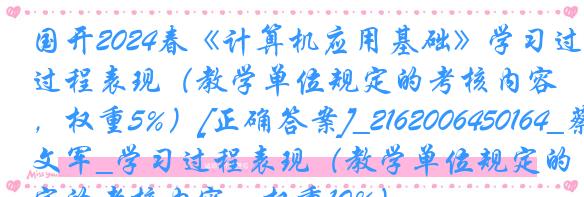 国开2024春《计算机应用基础》学习过
过程表现（教学单位规定的考核内容
，权重5%）[正确答案]_2162006450164_蔡
文军_学习过程表现（教学单位规定的
定的考核内容，权重10%）
Miss you